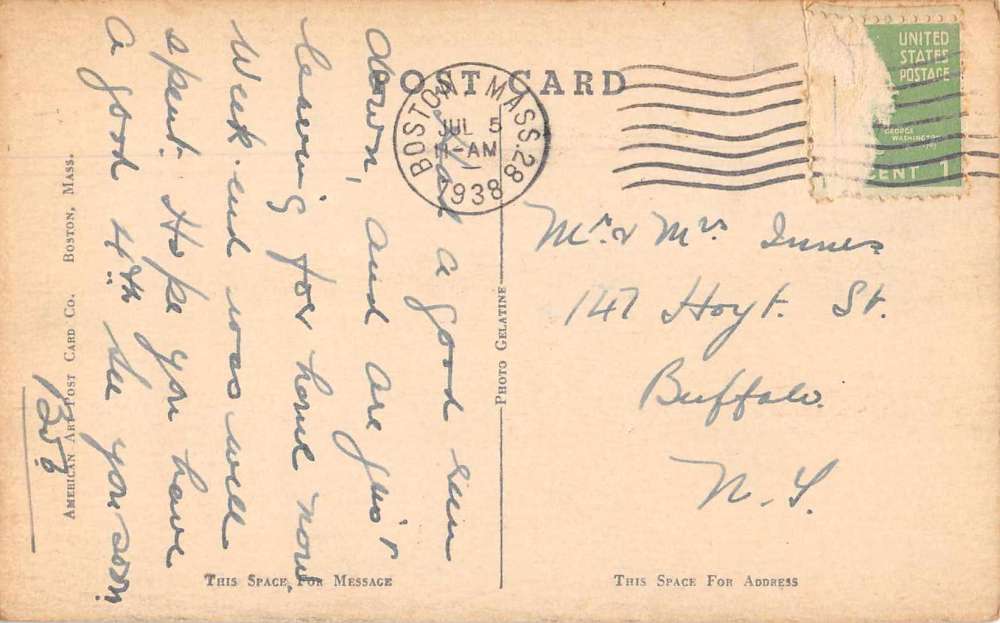 POST CARD
BOSTON, MASS. 28
JUL 5
11-AM
1938
UNITED
STATES
POSTAGE
GEORGE
WASHINGTON
CENT 1
Had a good run
down, and are jus't
leaving for home now.
Week-end was well
spent. Hope you have
a good 4th. See you soon.
Mr. & Mrs. Innes
147 Hoyt. St.
Buffalo.
N.Y.
PHOTO GELATINE
AMERICAN ART POST CARD CO. BOSTON, MASS.
THIS SPACE FOR MESSAGE
THIS SPACE FOR ADDRESS